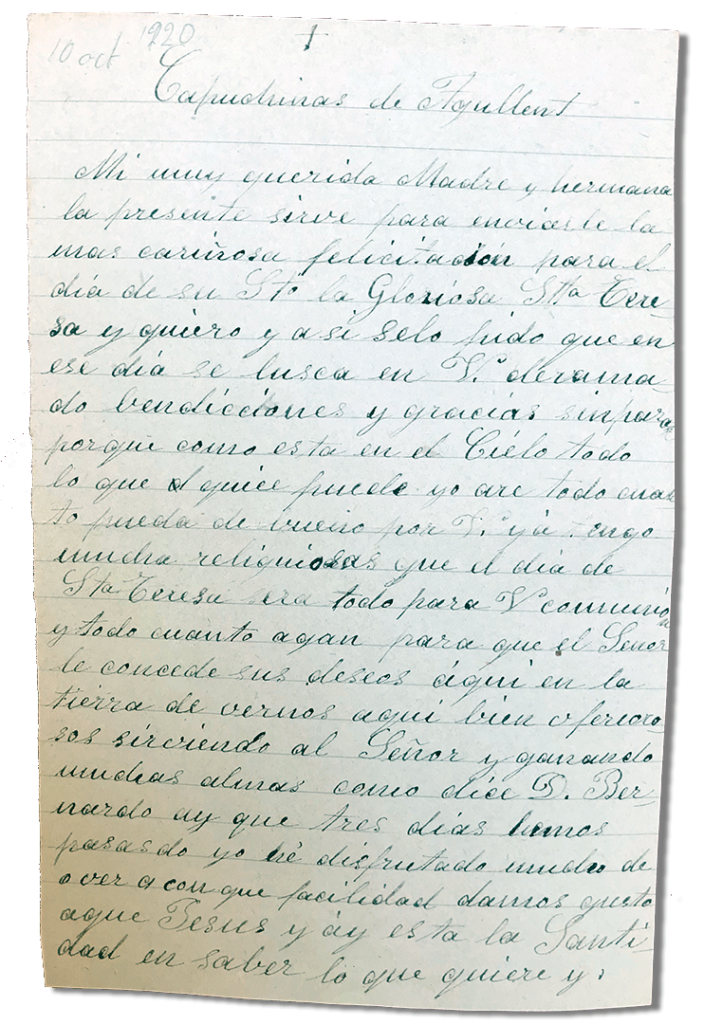 10 oct 1920
+
Capuchinas de Agullent
Mi muy querida Madre y hermana
la presente sirve para enviarle la
mas cariñosa felicitación para el
día de su Sto la Gloriosa Stta Tere-
sa y quiero y asi selo pido que en
ese día se lusca en V. derama
do bendicciones y gracias sinpara
porque como esta en el Cielo todo
lo que quiee puede yo are todo cuan
to pueda de bueno por V. yá tengo
mucha religiosas que el día de
Sta Teresa sera todo para V comunión
y todo cuanto agan para que el Señor
le concede sus deseos áqui en la
tierra de vernos aqui bien fervoro
sos sirviendo al Señor y ganando
muchas almas como dice D. Ber-
nardo ay que tres días hemos
pasasdo yo hé disfrutado mucho de
ver con que facilidad damos gusto
aque Jesus y áy esta la Santi-
dad en saber lo que quiere y